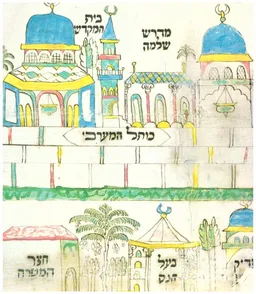 מדרש
שלמה
בית
המקדש
כותל המערבי
בעל
הנס
חצר
המטרה